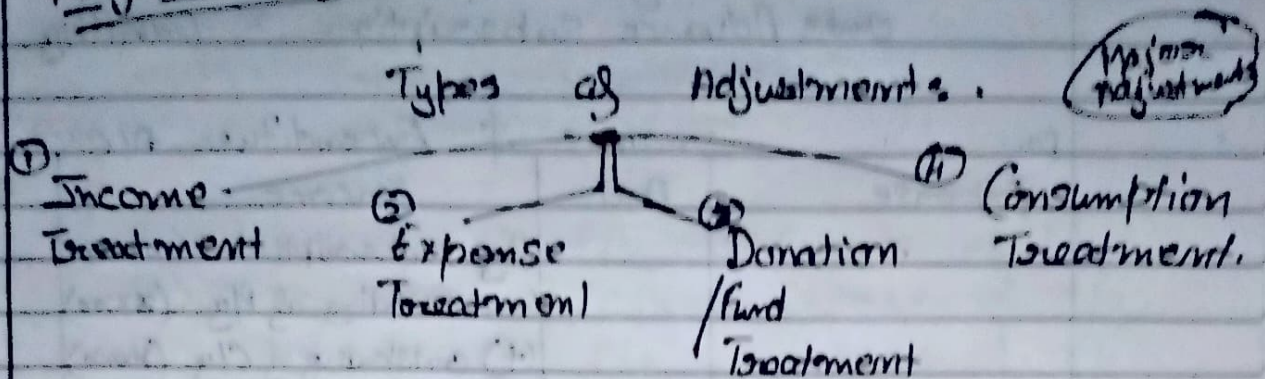 Types of Adjustments.
Major
Adjustments
①
Income
Treatment
②
Expense
Treatment
③
Donation
/Fund
Treatment
④
Consumption
Treatment.